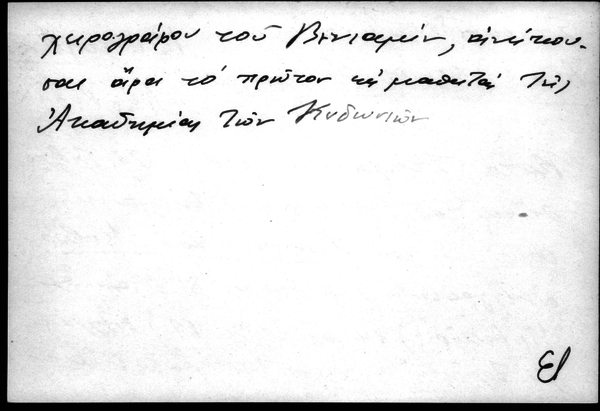 χειρογράφου τοῦ Βενιαμίν,
ἄρα τὸ πρῶτον μαθητὰς τῆς
Ἀκαδημίας τῶν Κυδωνιῶν
El